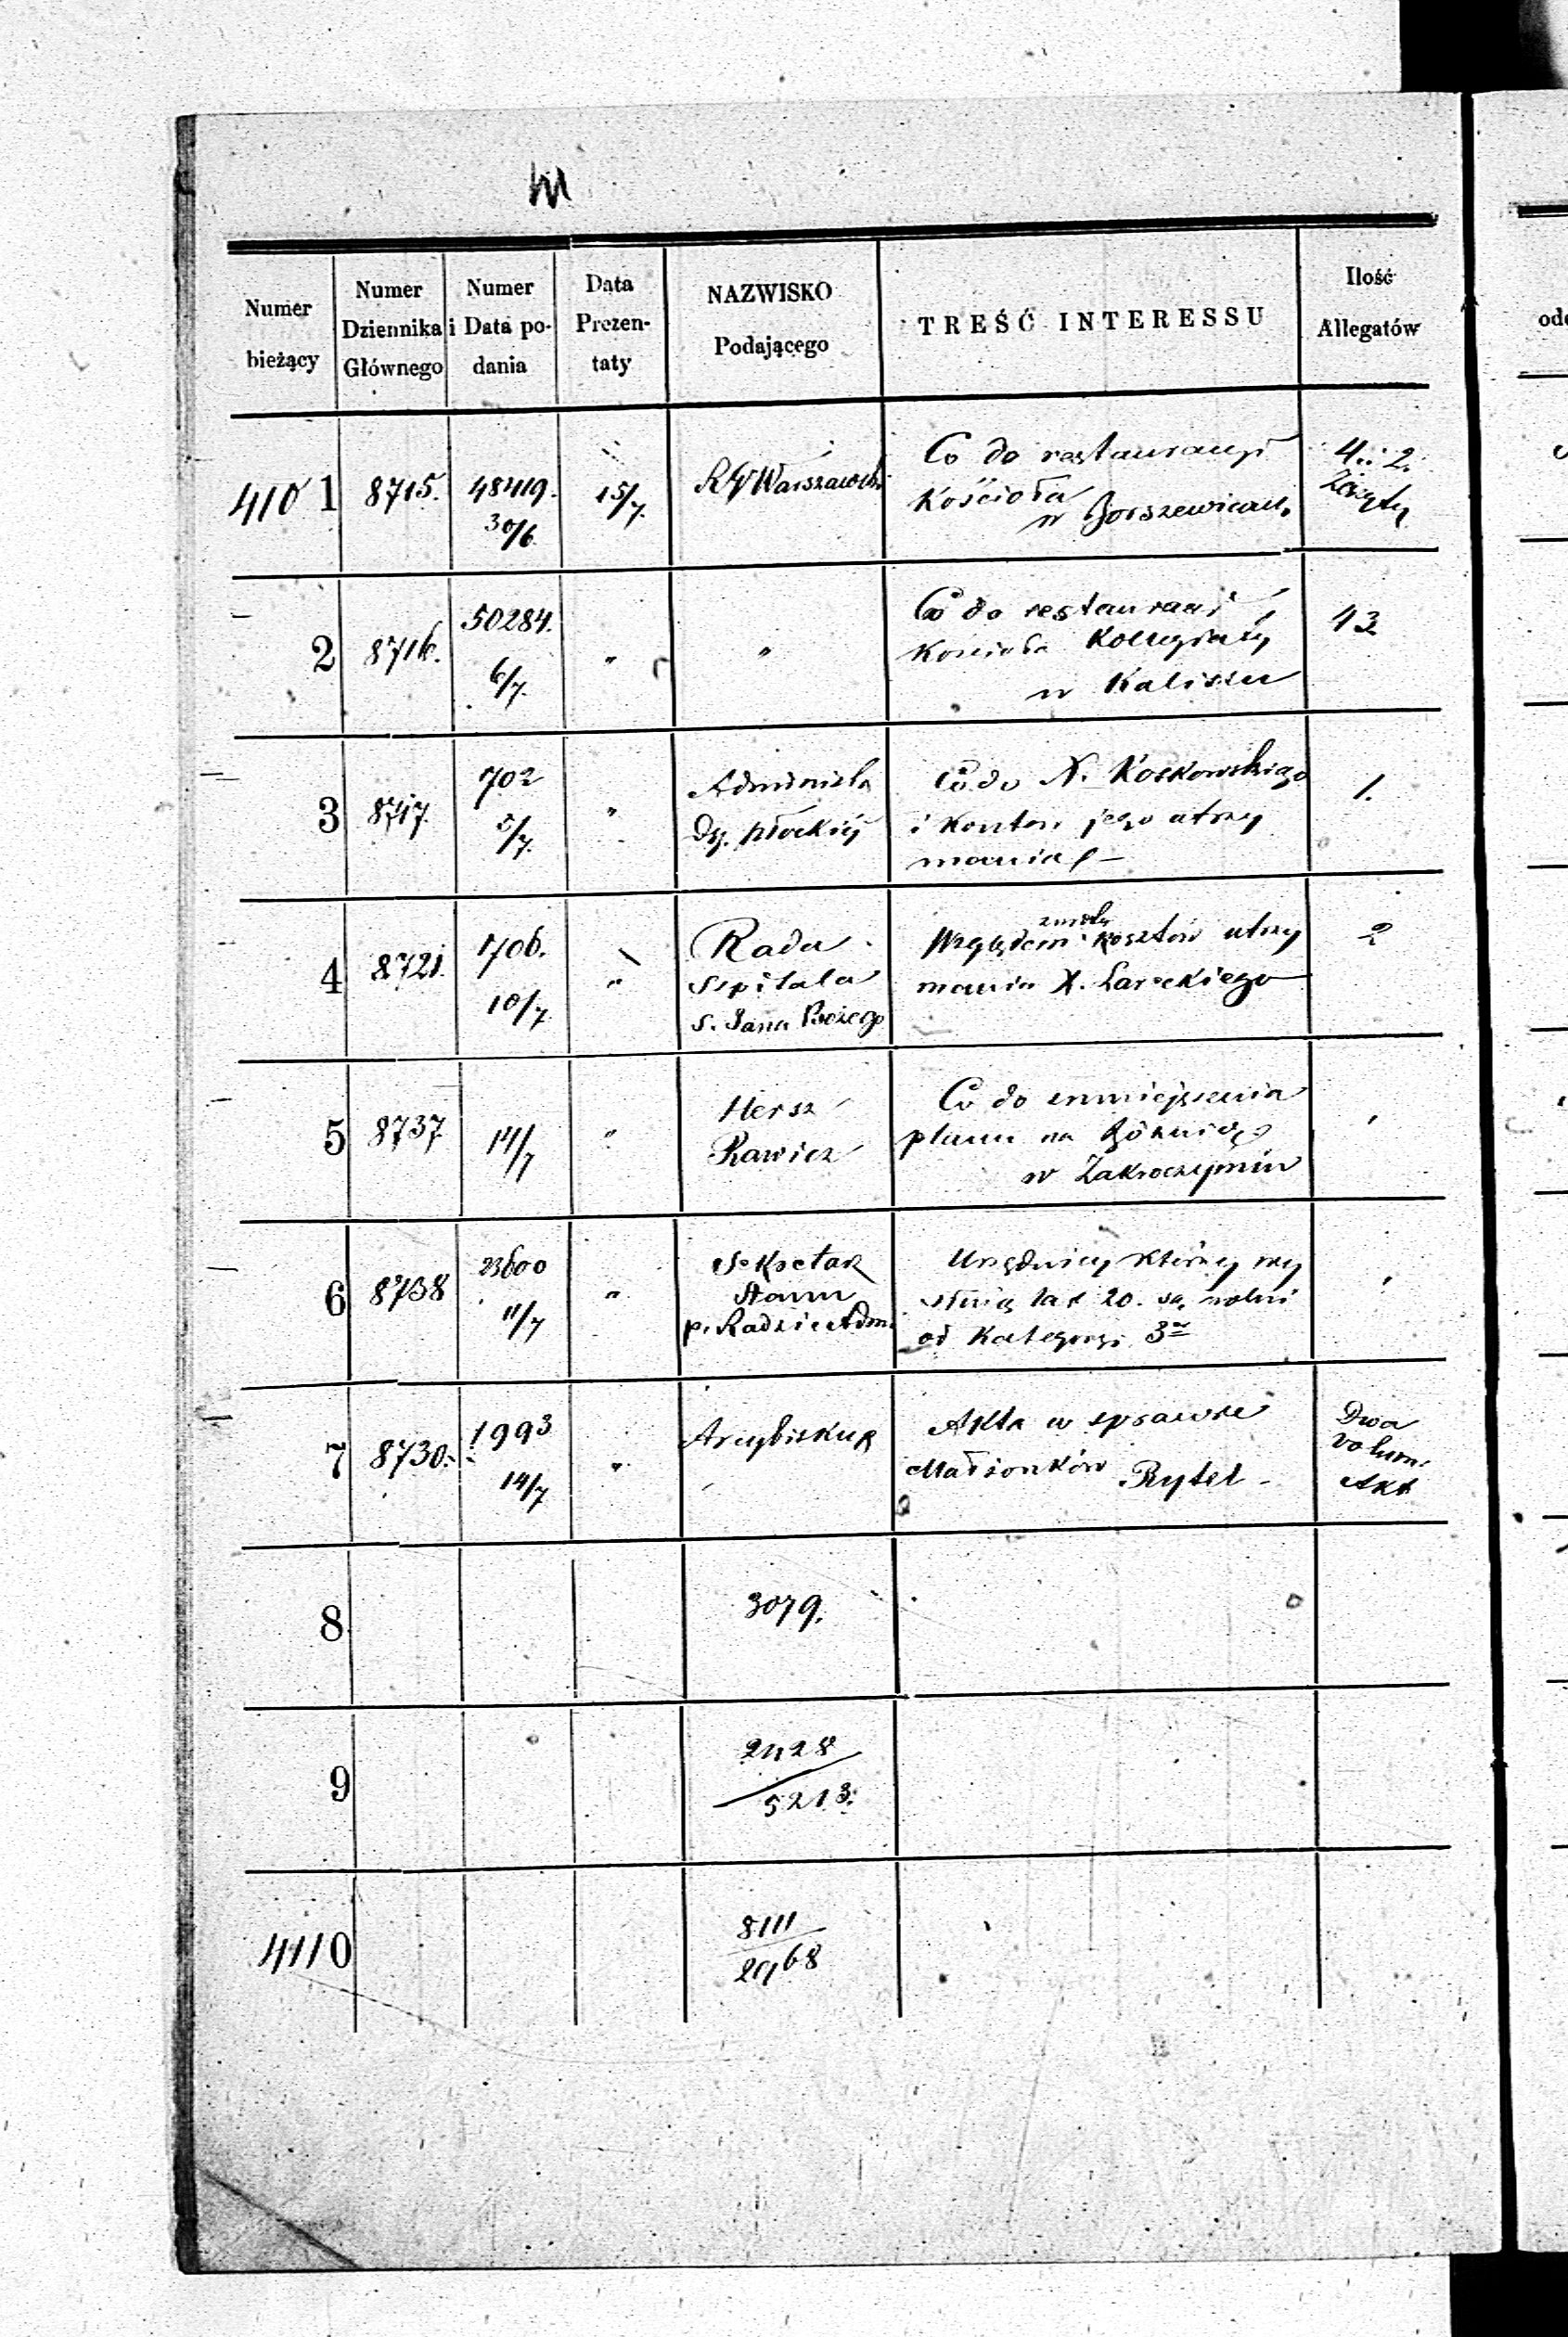 Numer bieżący
Numer Dziennika Głównego
Numer i Data podania
Data Prezentaty
NAZWISKO Podającego
TREŚĆ INTERESSU
Ilość Allegatów
410 1 8715. 48419. 30/6 15/7. RGWarszawsk.
Co do restauracyi
Kościoła
w Borszewicach.
4. i 2.
2 8716. 50284. 6/7. " "
Co do restauracyi
Kościoła Kollegiaty
w Kaliszu
43
3 8717. 702 5/7. "
Administr.
Dy. płockiej
Co do X.
i kosztów jego utrzy
mania
1.
4 8721. 706. 10/7 "
Rada
Szpitala
S. Jana Bożego
Względem zwrotu kosztów utrzy
mania X.
2
5 8737 14/7 "
Hersz
Rawicz
Co do
planu na Bóżnicę
w Zakroczymiu
6 8738 23600 11/7 "
Sekretarz
Stanu
p. Radzie Adm.
Urzędnicy którzy wy
służą lat 20. są wolni
od Kategoryi 3
7 8730. 1993 14/7 "
Arcybiskup
Akta w sprawie
Małżonków Rytel -
Dwa
volum.
Akt
8 3079.
9 2428
5213.
4110 8111
2968